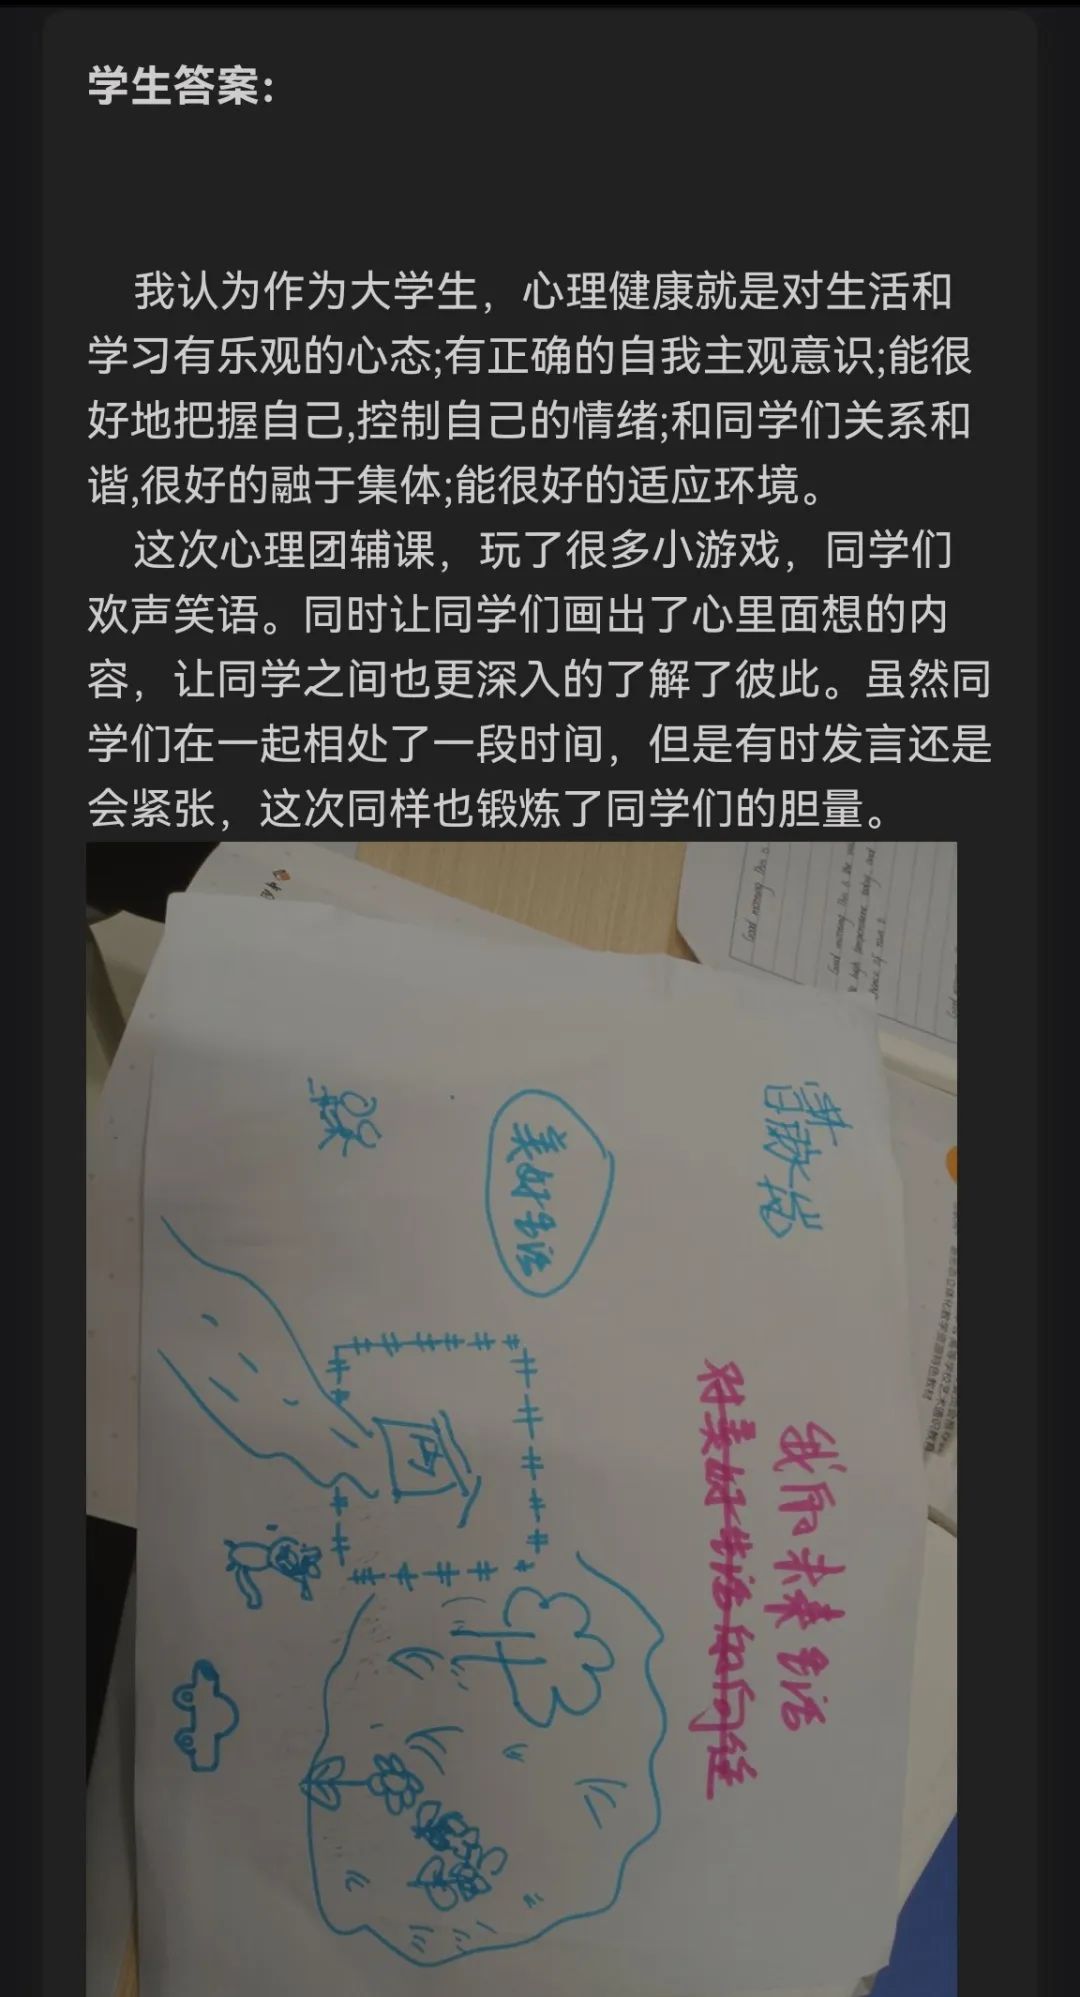 学生答案:
我认为作为大学生，心理健康就是对生活和
学习有乐观的心态;有正确的自我主观意识;能很
好地把握自己,控制自己的情绪;和同学们关系和
谐,很好的融于集体;能很好的适应环境。
这次心理团辅课，玩了很多小游戏，同学们
欢声笑语。同时让同学们画出了心里面想的内
容，让同学之间也更深入的了解了彼此。虽然同
学们在一起相处了一段时间，但是有时发言还是
会紧张，这次同样也锻炼了同学们的胆量。
我的未来生活
对美好生活的向往
美好生活
Good morning This is
Good morning This is the
high temperature today and